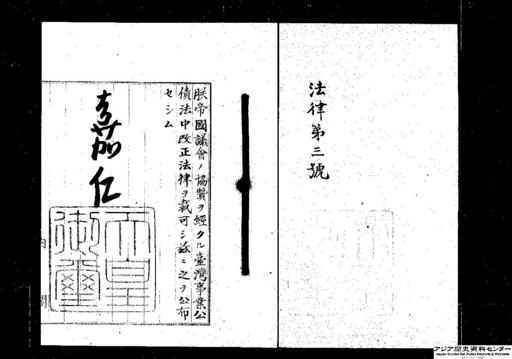 法律第三號
朕帝國議會ノ協贊ヲ經タル臺灣事業公
債法中改正法律ヲ裁可シ茲ニ之ヲ公布
セシム
嘉仁
天皇
御璽
内閣
アジア歴史資料センター
Japan Center for Asian Historical Records